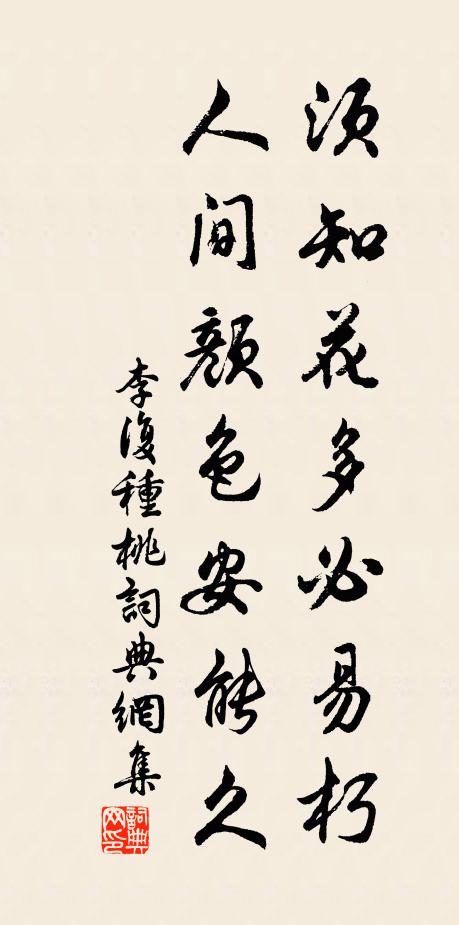 須知花多必易朽
人间顏色安能久
李復種桃詞典網集
詞典网印